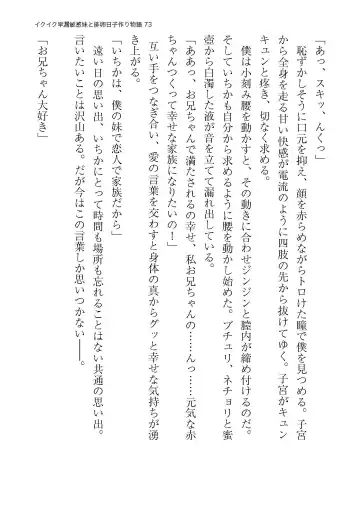 イクイク早漏敏感妹と排卵日子作り物語 73
「あっ、スキッ、んくっ」
恥ずかしそうに口元を抑え、顔を赤らめながらトロけた瞳で僕を見つめる。子宮
から全身を走る甘い快感が電流のように四肢の先から抜けてゆく。子宮がキュン
キュンと疼き、切なく求める。
僕は小刻み腰を動かすと、その動きに合わせジンジンと膣内が締め付けるのだ。
そしていちかも自分から求めるように腰を動かし始めた。ブチュリ、ネチョリと蜜
壺から白濁した液が音を立てて漏れ出している。
「ああっ、お兄ちゃんで満たされるの幸せ、私お兄ちゃんの……んっ……元気な赤
ちゃんつくって幸せな家族になりたいのー」
互い手をつなぎ合い、愛の言葉を交わすと身体の真からグッと幸せな気持ちが湧
き上がる。
「いちかは、僕の妹で恋人で家族だから」
遠い日の思い出、いちかにとって時間も場所も忘れることはない共通の思い出。
言いたいことは沢山ある。だが今はこの言葉しか思いつかない――。
「お兄ちゃん大好き」